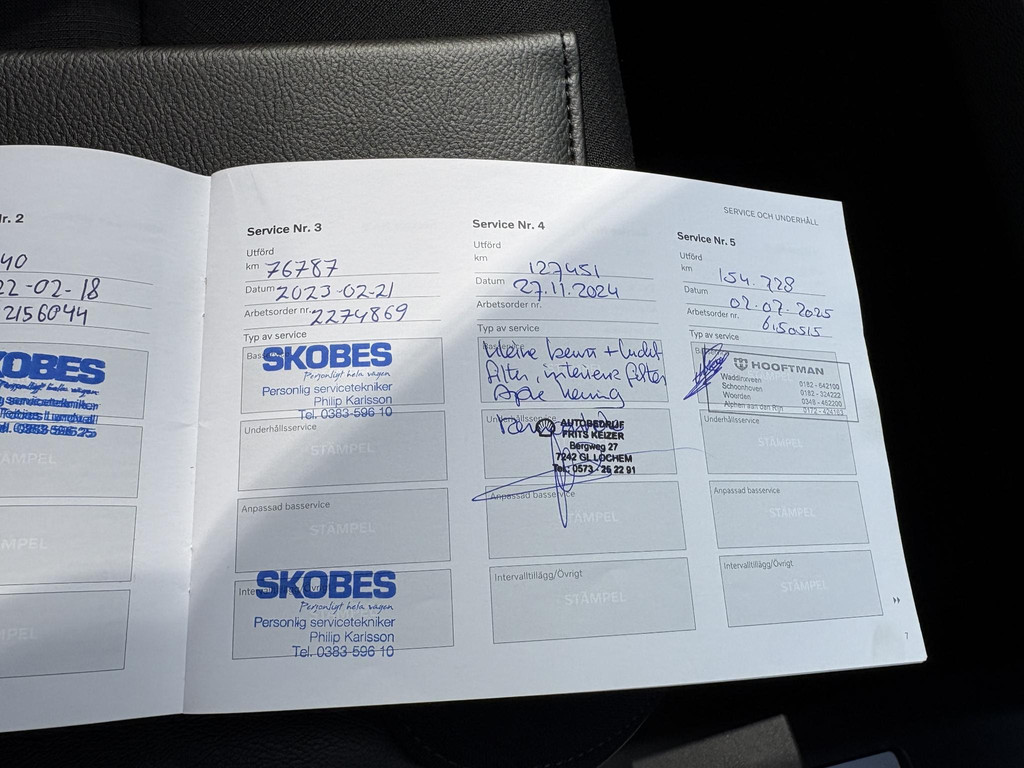 Nr. 2
40
22-02-18
2156044
SKOBES
STÄMPEL
MPEL
PEL
Service Nr. 3
Utförd
km 76787
Datum 2023-02-21
Arbetsorder nr. 2274869
Typ av service
SKOBES
Personligt hela vägen
Personlig servicetekniker
Philip Karlsson
Tel. 0383-596 10
Underhållsservice
Anpassad basservice
STÄMPEL
SKOBES
Personligt hela vägen
Personlig servicetekniker
Philip Karlsson
Tel. 0383-596 10
Service Nr. 4
Utförd
km 127451
Datum 27.11.2024
Arbetsorder nr.
Typ av service
kleine beurt + lucht
filter, interieur filter
Apk keuring
Underhållsservice
AUTOBEDRIJF
FRITS KEIZER
Bergweg 27
7242 GL LOCHEM
Tel: 0573 - 25 22 91
Anpassad basservice
STÄMPEL
Intervalltillägg/Övrigt
STÄMPEL
SERVICE OCH UNDERHÅLL
Service Nr. 5
Utförd
km 154.728
Datum 02.07.2025
Arbetsorder nr. 650515
Typ av service
HOOFTMAN
Waddinxveen 0182 - 642100
Schoonhoven 0182 - 324222
Woerden 0348 - 462200
Alphen aan den Rijn
Underhållsservice
STÄMPEL
Anpassad basservice
STÄMPEL
Intervalltillägg/Övrigt
STÄMPEL
7